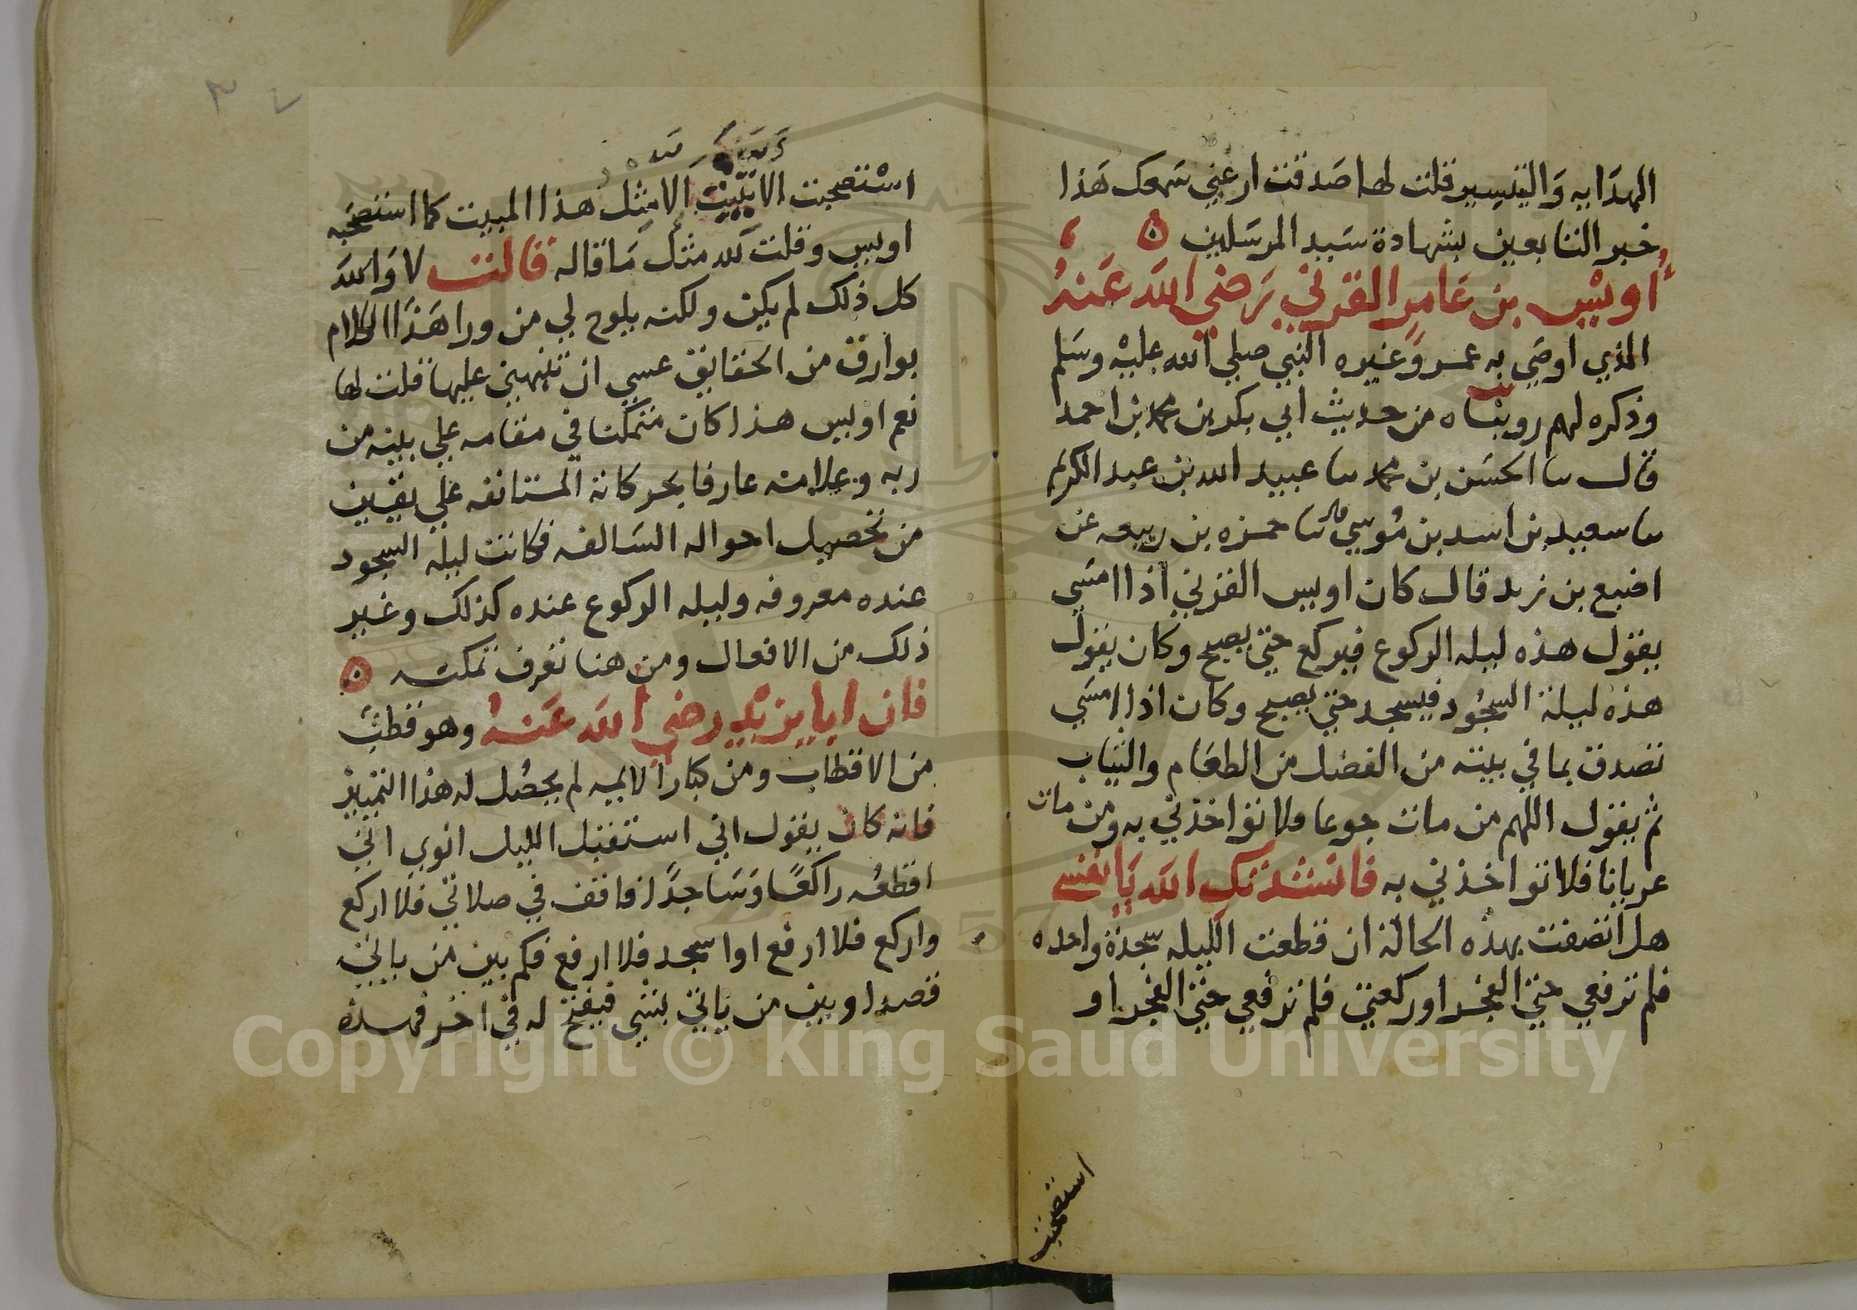 الهدايه والتيسير قلت لها صدقت ارعني سمعك هذا
خير التابعين بشهادة سيد المرسلين
اويس بن عامر القرني رضي الله عنه
الذي اوصي به عمر وغيره النبي صلي الله عليه وسلم
وذكره لهم روينا ه من حديث ابي بكر بن محمد بن احمد
قال سا الحسن بن محمد سا عبيد الله بن عبد الكريم
سا سعيد بن اسد بن موسي سا حمزه بن ربيعه عن
اصبع بن زيد قال كان اويس القرني اذا امسي
يقول هذه ليله الركوع فيركع حتي يصبح وكان يقول
هذه ليلة السجود فيسجد حتي يصبح وكان اذا امسي
تصدق بما في بيته من الفضل من الطعام والثياب
ثم يقول اللهم من مات جوعا فلا تواخذني به ومن مات
عريانا فلا تواخذني به فانشدتك الله يا نفسي
هل اتصفت بهذه الحالة ان قطعت الليله سجدة واحده
فلم ترفعي حتي الفجر او ركعتي فلم ترفعي حتي الفجر او
استصحبت
استصحبت الا مثل هذا المبيت كما استصحبه
اويس وقلت لله مثل ما قاله قالت لا والله
كل ذلك لم يكن ولكنه يلوح لي من ورا هذا الكلام
بوارق من الحقايق عسي ان تنبهني عليها قلت لها
نعم اويس هذا كان متمكنا في مقامه علي بينه من
ربه وعلامته عارفا بحركاته المستانفه علي يقين
من تحصيل احواله السالفه فكانت ليله السجود
عنده معروفه وليله الركوع عنده كذلك وغير
ذلك من الافعال ومن هنا تعرف تمكنه
فان ابا يزيد رضي الله عنه وهو قطب
من الاقطاب ومن كبار الايمه لم يحصل له هذا التمييز
فانه كان يقول اني استقبل الليل انوي اني
اقطعه راكعا وساجدا فاقف في صلاتي فلا اركع
واركع فلا ارفع او اسجد فلا ارفع فكم بين من ياتي
قصدا وبين من ياتي بشي فيفتح له في اخر فهذه
Copyright © King Saud University